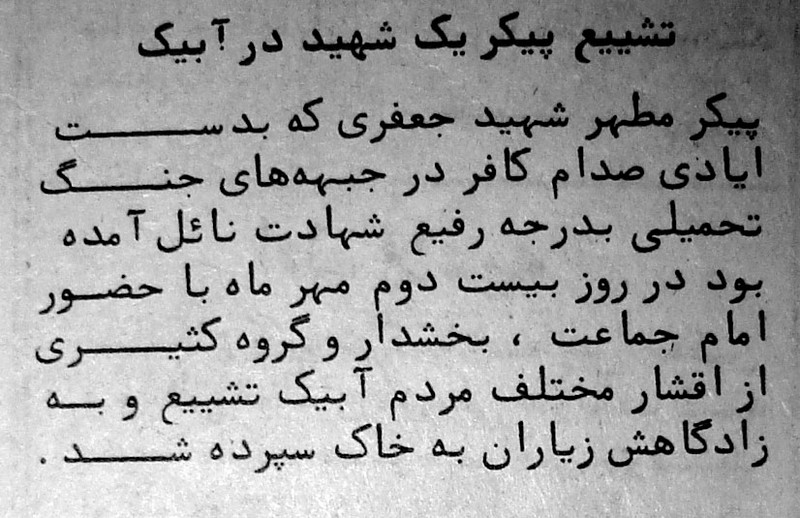 تشییع پیکر یک شهید در آبیک
پیکر مطهر شهید جعفری که بدست
ایادی صدام کافر در جبهه‌های جنگ
تحمیلی بدرجه رفیع شهادت نائل آمده
بود در روز بیست دوم مهر ماه با حضور
امام جماعت ، بخشدار و گروه کثیری
از اقشار مختلف مردم آبیک تشییع و به
زادگاهش زیاران به خاک سپرده شد .